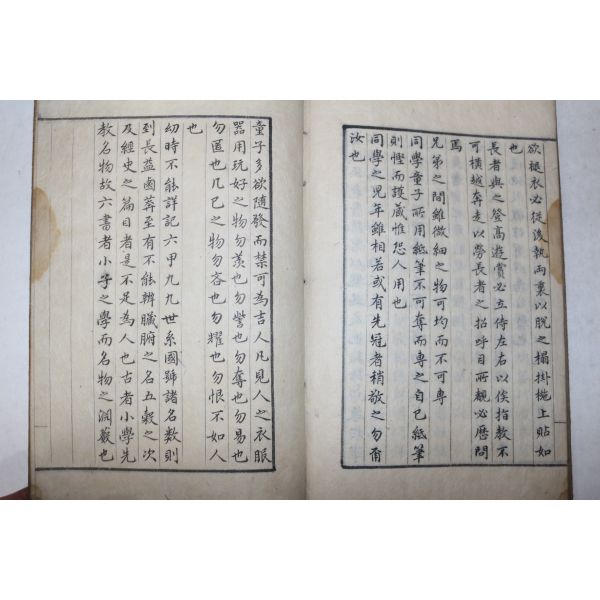 欲褪衣必從後執兩裏以脫之搨掛椸上貼如
也
長者與之登高遊賞必立侍左右以俟指教不
可橫越奔走以勞長者之招呼目所覩必歷問
焉
兄弟之間雖微細之物可均而不可專
同學童子所用紙筆不可奪而專之自己紙筆
則慳而護藏惟恐人用也
同學之児年雖相若或有先冠者稍敬之勿爾
汝也
童子多欲隨發而禁可為吉人凡見人之衣服
器用玩好之物勿羨也勿訾也勿奪也勿易也
勿匿也凡己之物勿吝也勿耀也勿恨不如人
也
幼時不能詳記六甲九九世系國號諸名數則
到長益鹵莽至有不能辨臟腑之名五穀之次
及經史之篇目者是不足為人也古者小學先
教名物故六書者小子之學而名物之淵藪也